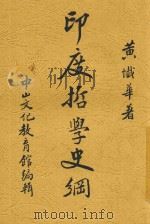 黃懺華著
印度哲學史綱
中山文化教育館編輯